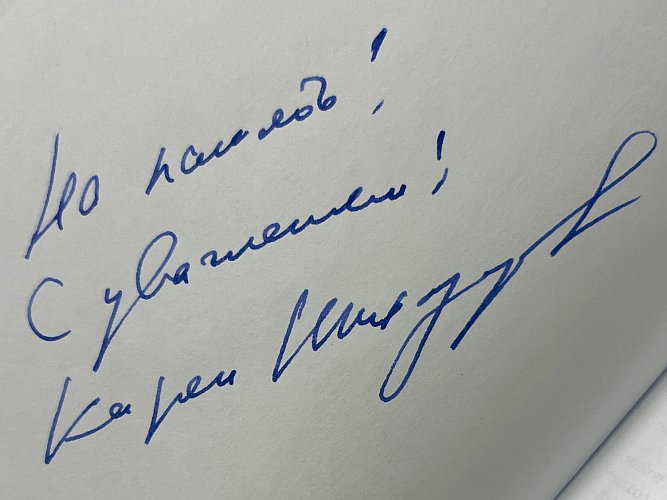 На память!
С уважением!
Карен Шахназаров